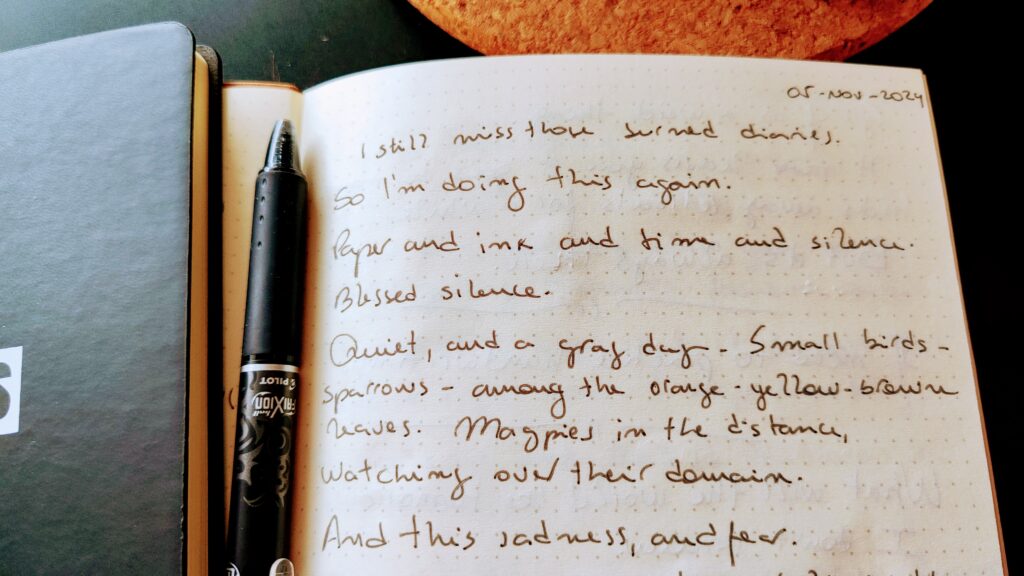 05-Nov-2024
I still miss those burned diaries.
So I'm doing this again.
Paper and ink and time and silence.
Blessed silence.
Quiet, and a gray day. Small birds -
sparrows - among the orange-yellow-brown
leaves. Magpies in the distance,
watching over their domain.
And this sadness, and fear.
PILOT
FRIXION